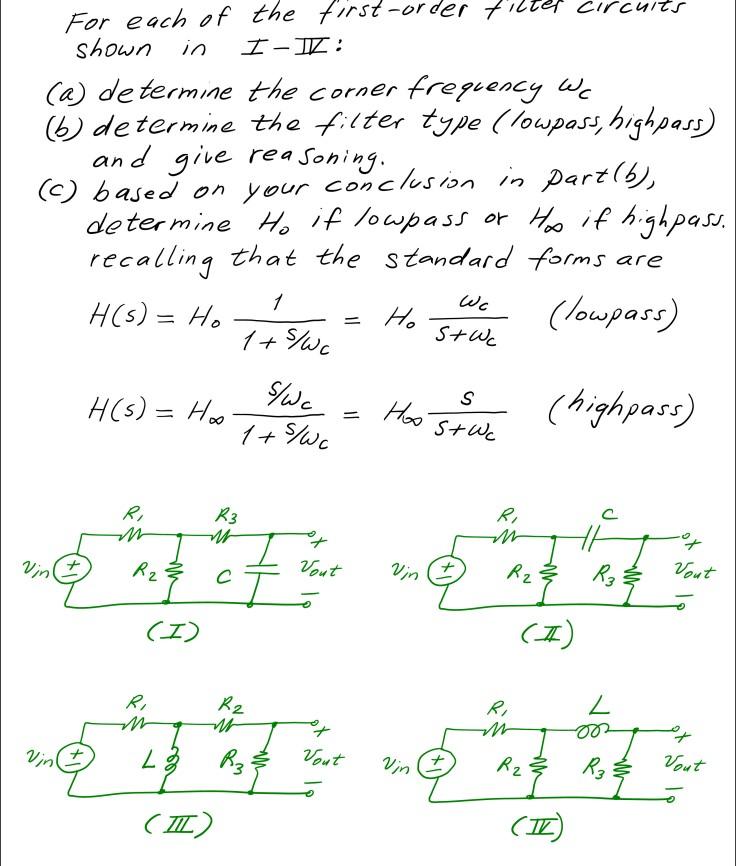 For each of the first-order filter circuits
shown in I-IV:
(a) determine the corner frequency ωc
(b) determine the filter type (lowpass, highpass)
and give reasoning.
(c) based on your conclusion in part(b),
determine H₀ if lowpass or H∞ if highpass.
recalling that the standard forms are
H(s) = H₀ 1/(1+s/ωc) = H₀ ωc/(s+ωc) (lowpass)
H(s) = H∞ (s/ωc)/(1+s/ωc) = H∞ s/(s+ωc) (highpass)
R₁ R₃
Vin + − R₂ C + Vout −
(I)
R₁ C
Vin + − R₂ R₃ + Vout −
(II)
R₁ R₂
Vin + − L R₃ + Vout −
(III)
R₁ L
Vin + − R₂ R₃ + Vout −
(IV)